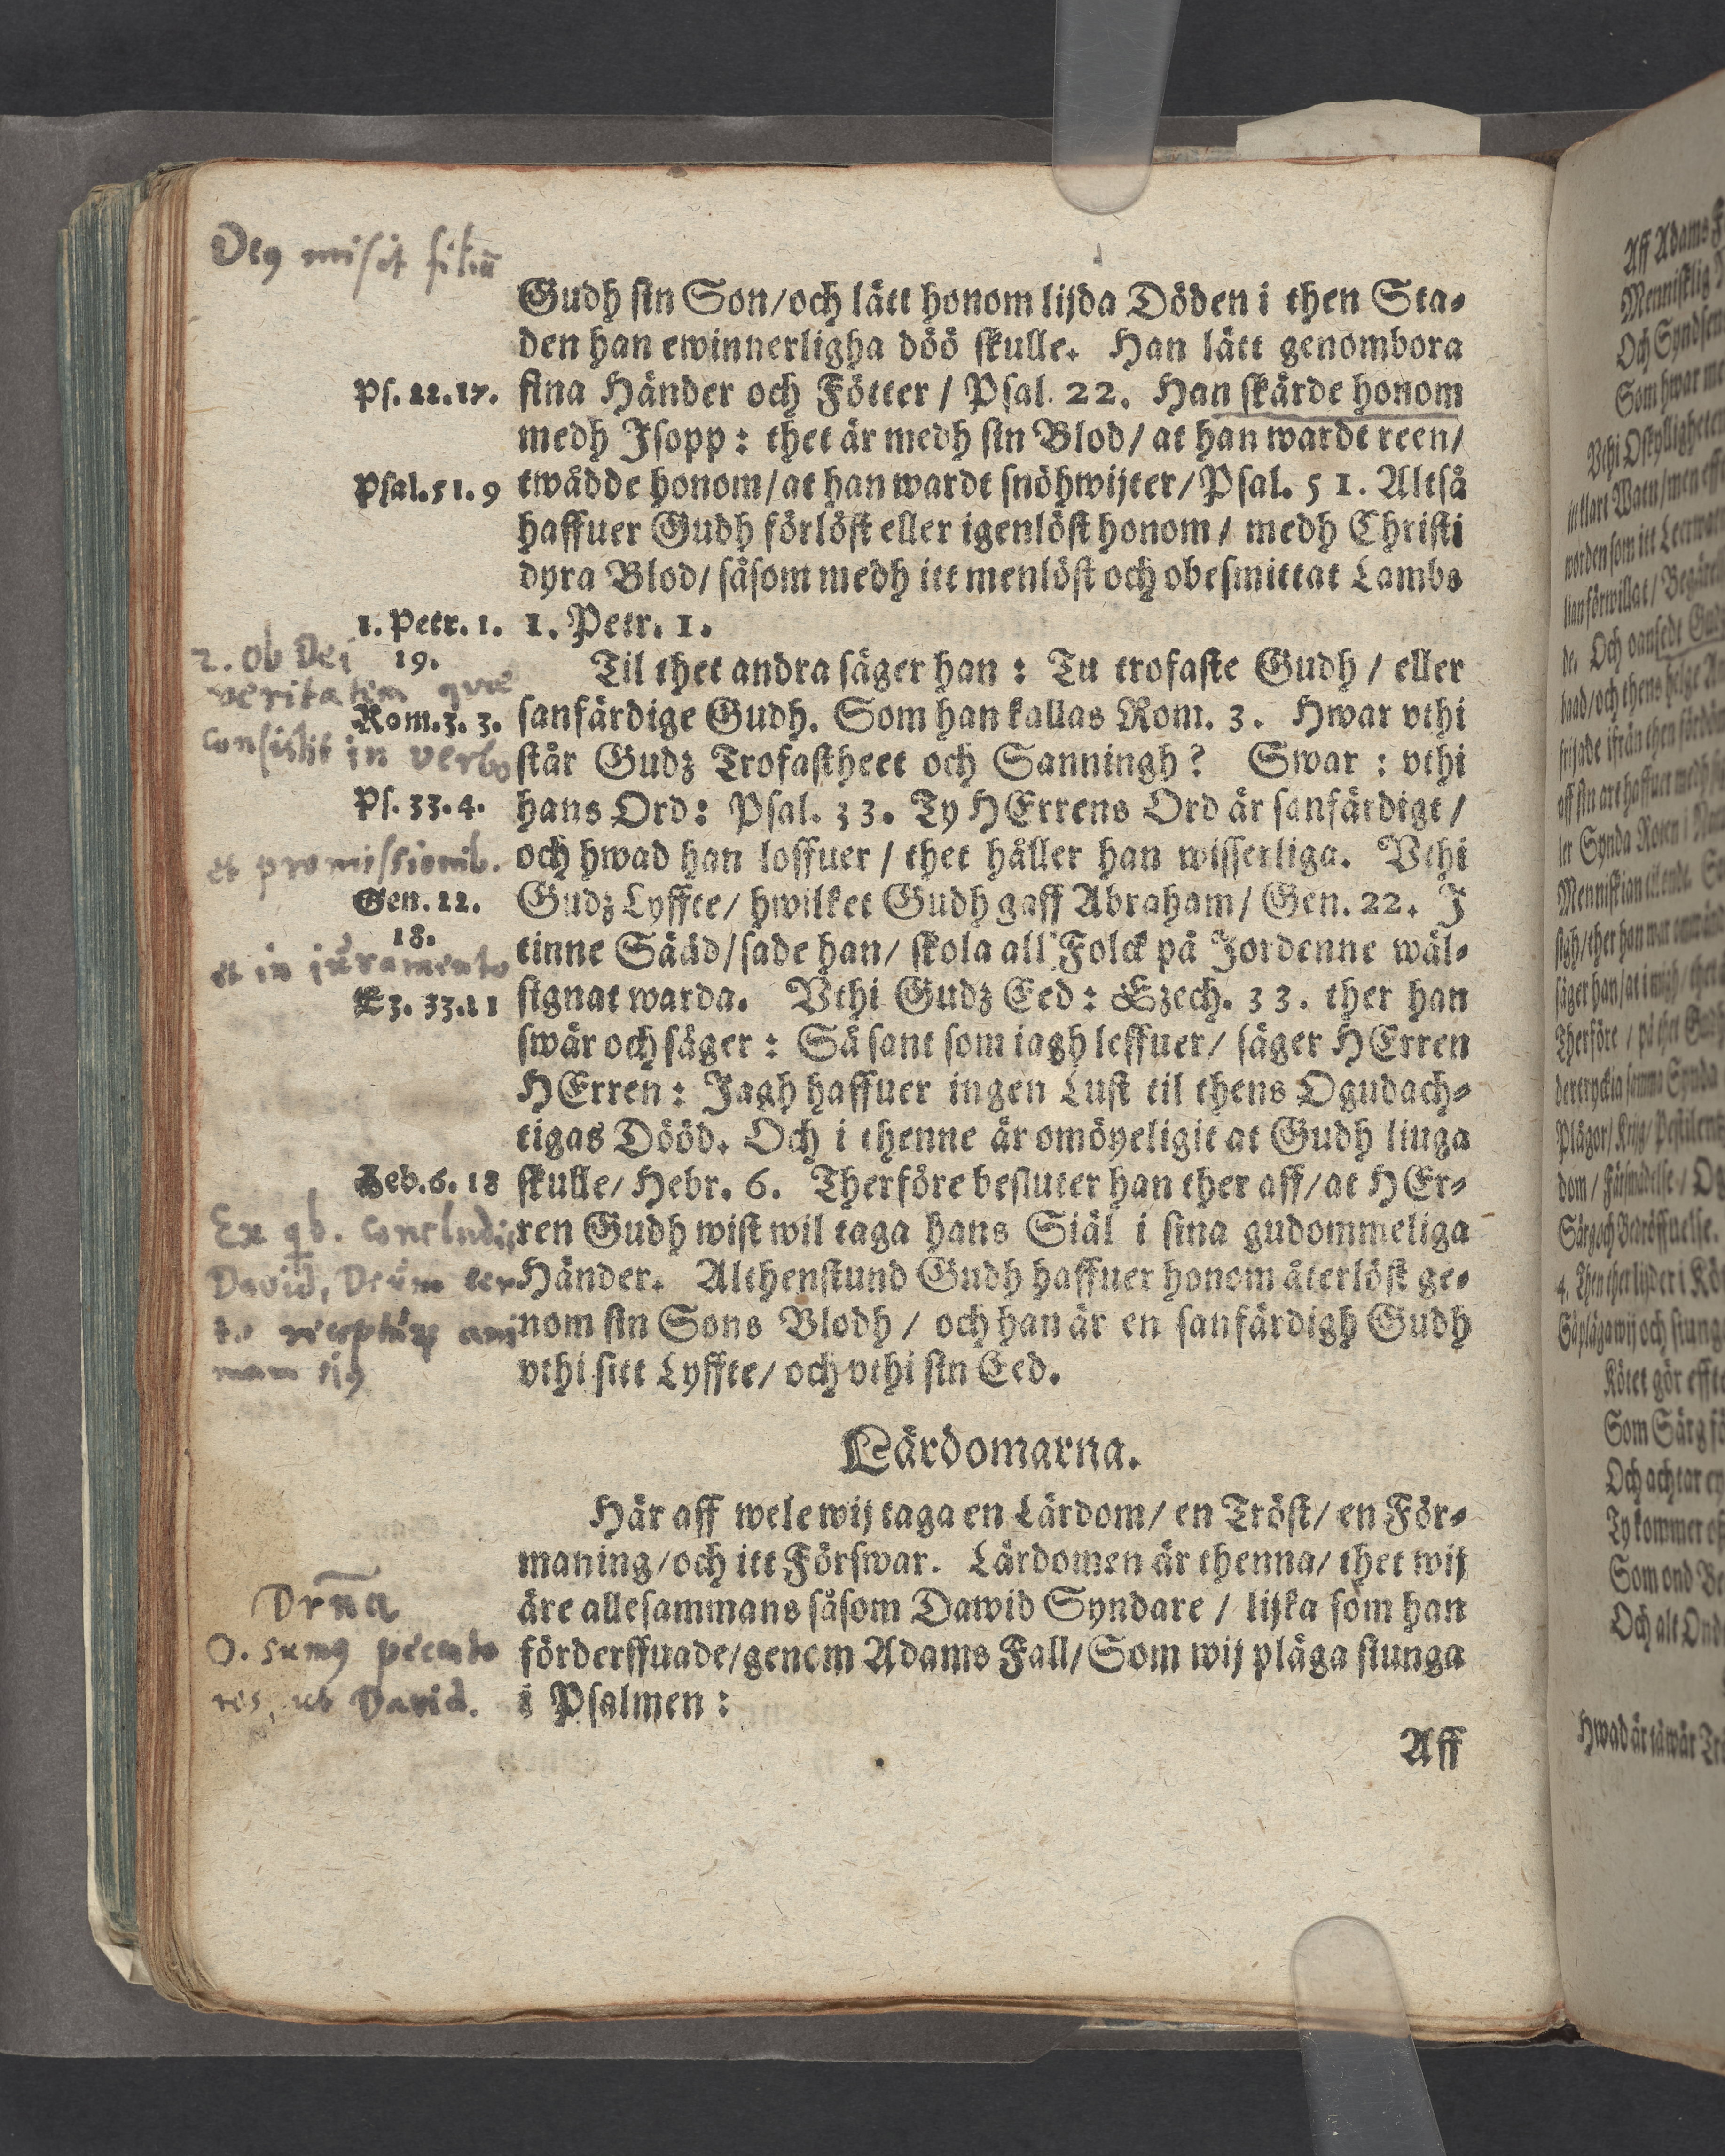 Deꝰ misit filiū
Gudh sin Son/och lätt honom lijda Döden i then Sta-
den han ewinnerligha döö skulle. Han lätt genombora
Ps. 22.17.
sina Händer och Fötter / Psal. 22. Han skärde honom
medh Jsopp: thet är medh sin Blod/ at han wardt reen/
Psal. 51. 9
twådde honom/at han wardt snöhwijter/Psal. 51. Altså
haffuer Gudh förlöst eller igenlöst honom/ medh Christi
dyra Blod/ såsom medh itt menlöst och obesmittat Lambs
1. Petr. 1.
19.
1. Petr. 1.
2. ob Dei
veritatem quæ
consistit in verbo
Til thet andra säger han: Tu trofaste Gudh / eller
Rom. 3. 3.
sanfärdige Gudh. Som han kallas Rom. 3. Hwar vthi
står Gudz Trofastheet och Sanningh? Swar: vthi
Ps. 33. 4.
hans Ord: Psal. 33. Ty HErrens Ord är sanfärdigt/
et promissionib.
och hwad han loffuer / thet håller han wisserliga. Vthi
Gen. 22.
18.
Gudz Lyffte/ hwilket Gudh gaff Abraham/ Gen. 22. J
et in juramento
tinne Sääd/sade han/ skola all Folck på Jordenne wäl-
Ez. 33.11
signat warda. Vthi Gudz Eed: Ezech. 33. ther han
swär och säger: Så sant som iagh leffuer/ säger HErren
HErren: Jagh haffuer ingen Lust til thens Ogudach-
tigas Dööd. Och i thenne är omöyeligit at Gudh liuga
Heb. 6. 18
skulle/ Hebr. 6. Therföre besluter han ther aff/ at HEr-
Ex qb. concludit
David, Deum cer
to receptūꝝ ani
mam
ren Gudh wist wil taga hans Siäl i sina gudommeliga
Händer. Althenstund Gudh haffuer honom återlöst ge-
nom sin Sons Blodh / och han är en sanfärdigh Gudh
vthi sitt Lyffte/ och vthi sin Eed.
Lärdomarna.
Här aff wele wij taga en Lärdom/ en Tröst/ en För-
maning/och itt Förswar. Lärdomen är thenna/ thet wij
Drña
äre allesammans såsom Dawid Syndare / lijka som han
O. sumꝰ peccato
res, ut David.
förderffuade/genom Adams Fall/Som wij pläga siunga
i Psalmen:
Aff
Aff Adams F
Mennisklig
Och Syndsen
Som hwar me